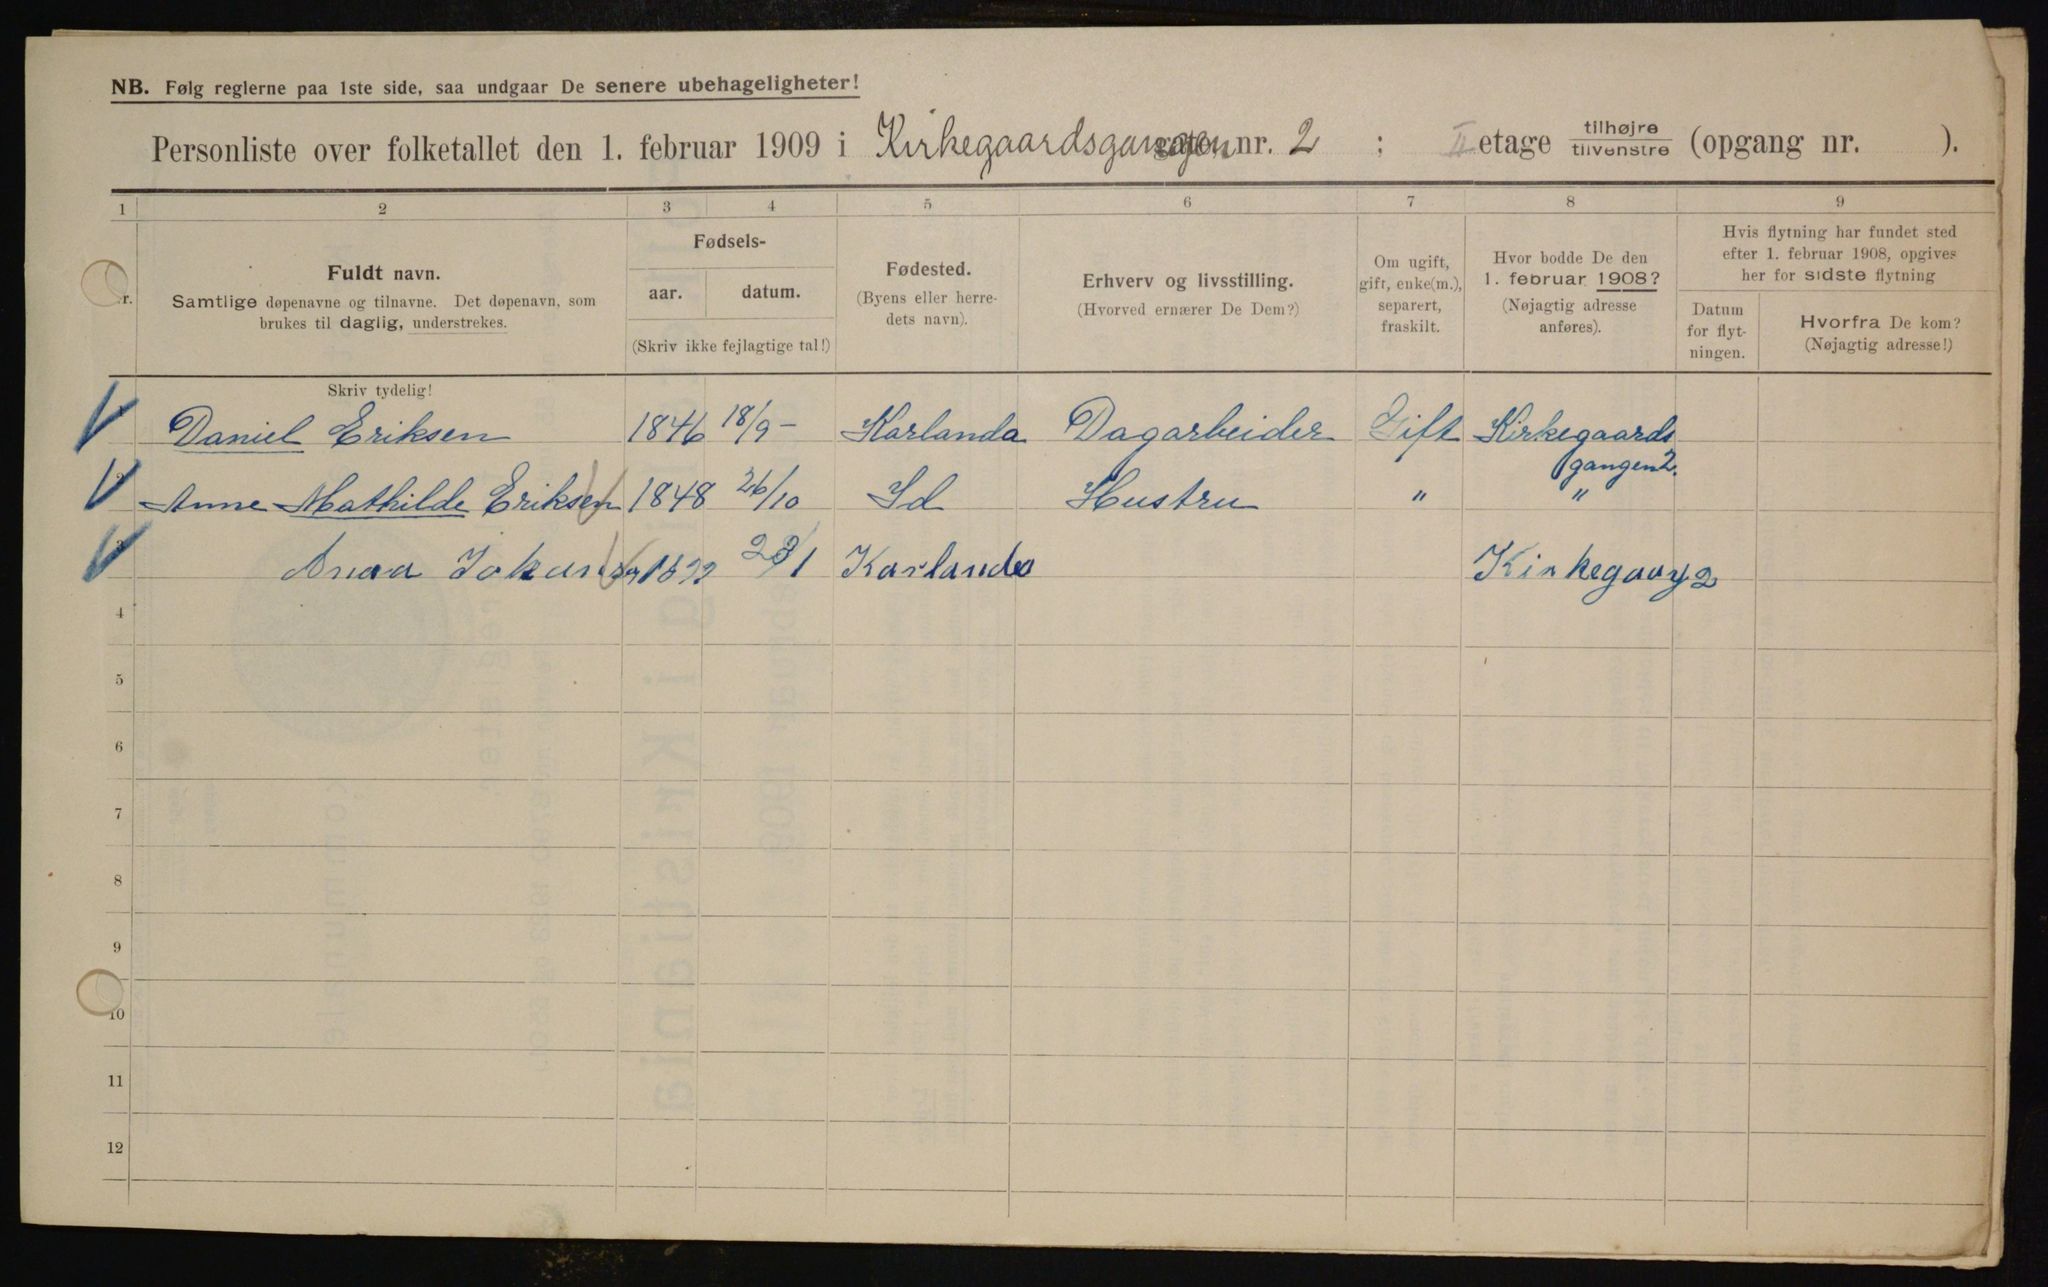 NB. Følg reglerne paa 1ste side, saa undgaar De senere ubehageligheter!
Personliste over folketallet den 1. februar 1909 i Kirkegaardsgangen nr. 2 ; II etage tilhøjre tilvenstre (opgang nr. ).
1 2 3 4 5 6 7 8 9
Nr.
Fuldt navn.
Samtlige døpenavne og tilnavne. Det døpenavn, som
brukes til daglig, understrekes.
Fødsels-
aar. datum.
(Skriv ikke fejlagtige tal!)
Fødested.
(Byens eller herre-
dets navn).
Erhverv og livsstilling.
(Hvorved ernærer De Dem?)
Om ugift,
gift, enke(m.),
separert,
fraskilt.
Hvor bodde De den
1. februar 1908?
(Nøjagtig adresse
anføres).
Hvis flytning har fundet sted
efter 1. februar 1908, opgives
her for sidste flytning
Datum
for flyt-
ningen.
Hvorfra De kom?
(Nøjagtig adresse!)
Skriv tydelig!
Daniel Eriksen 1846 18/9 - Karlanda Dagarbeider Gift Kirkegaards
gangen 2.
Anne Mathilde Eriksen 1848 26/10 Id Hustru " "
3 Anna 1 Karlanda Kirkegaarg 2
4
5
6
7
8
9
10
11
12